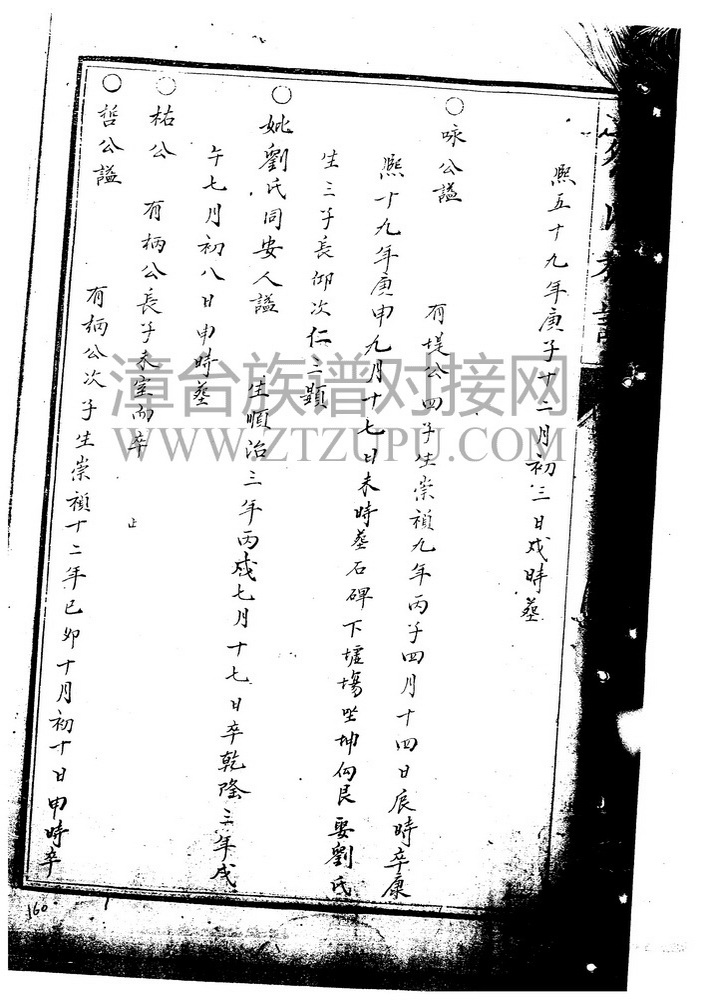 熙五十九年庚子十二月初三日戍時葬
○
咏公諡
有堤公四子生崇禎九年丙子四月十四日辰時卒康
熙十九年庚申九月十七日未時葬石碑下墟塲坐坤向艮娶劉氏
生三子長仰次仁三顯
○
妣劉氏同安人諡
生順治三年丙戍七月十七日卒乾隆三年戍
午七月初八日申時葬
○
祐公
有柄公長子未室而卒
止
○
哲公諡
有柄公次子生崇禎十二年已卯十月初十日申時卒
160
漳台族谱对接网
WWW.ZTZUPU.COM